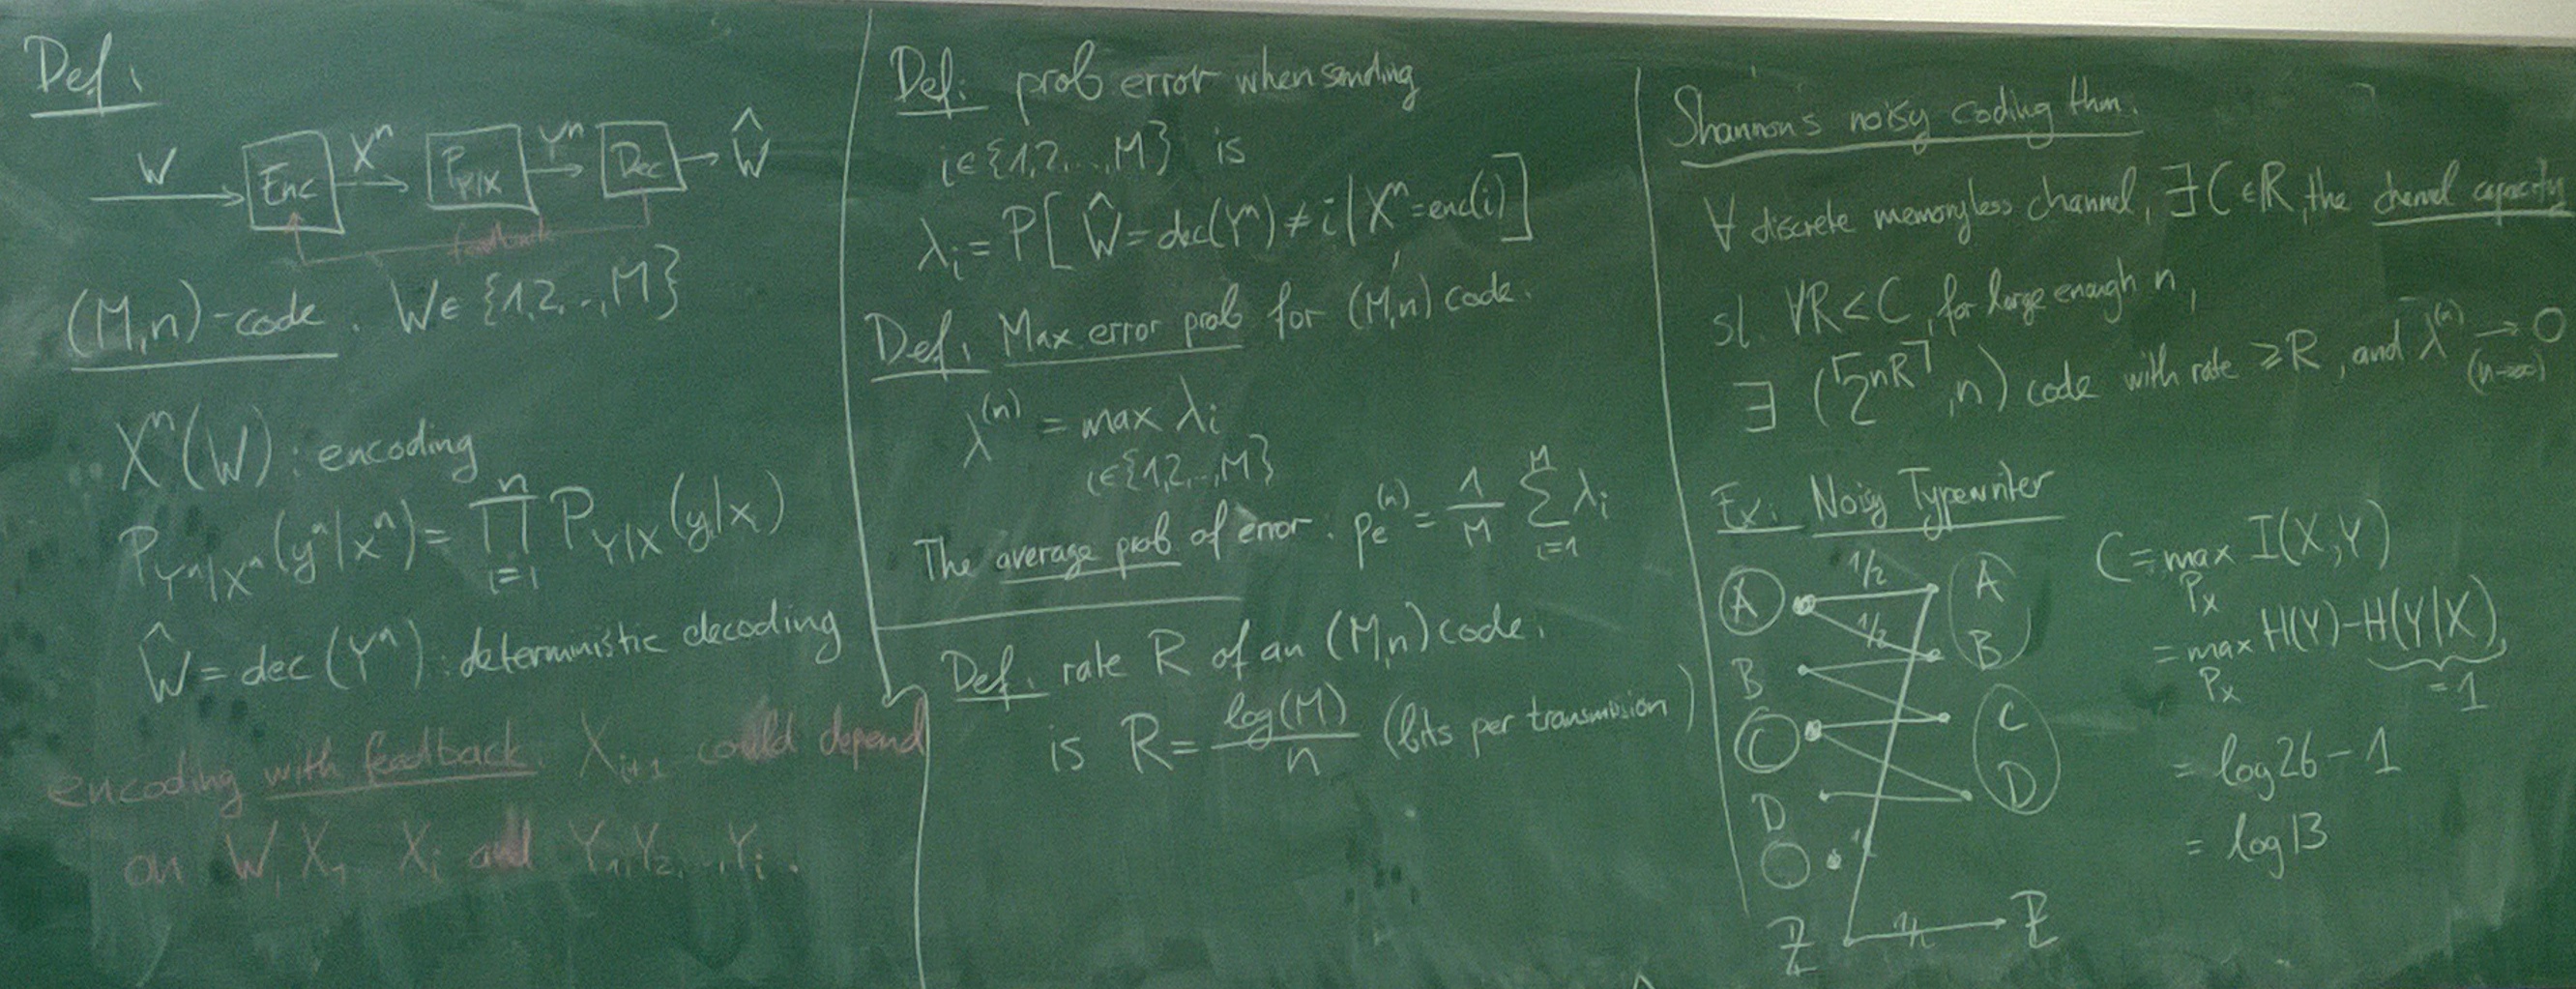 Def:
W Enc Xⁿ P_{Y|X} Yⁿ Dec Ŵ
feedback
(M,n)-code. W∈{1,2,..,M}
Xⁿ(W): encoding
P_{Yⁿ|Xⁿ}(yⁿ|xⁿ)= ∏_{i=1}^{n} P_{Y|X}(y|x)
Ŵ = dec(Yⁿ): deterministic decoding
encoding with feedback: X_{i+1} could depend
on W, X₁ X_i and Y₁,Y₂,..,Y_i.
Def: prob error when sending
i∈{1,2,..,M} is
λ_i = P[Ŵ=dec(Yⁿ)≠i|Xⁿ=enc(i)]
Def: Max. error prob for (M,n) code.
λ^{(n)} = max λ_i
i∈{1,2,..,M}
The average prob. of error: p_e^{(n)} = 1/M ∑_{i=1}^{M} λ_i
Def: rate R of an (M,n) code:
is R = log(M)/n (bits per transmission)
Shannon's noisy coding thm.
∀ discrete memoryless channel, ∃C∈ℝ, the channel capacity
st. ∀R<C, for large enough n,
∃ (⌈2^{nR}⌉,n) code with rate ≥R, and λ^{(n)} → 0
(n→∞)
Ex: Noisy Typewriter
A 1/2 A
1/2
B B
C C
D D
Z 1/2 Z
C = max_{P_X} I(X;Y)
= max_{P_X} H(Y)-H(Y|X)
=1
= log26-1
= log13